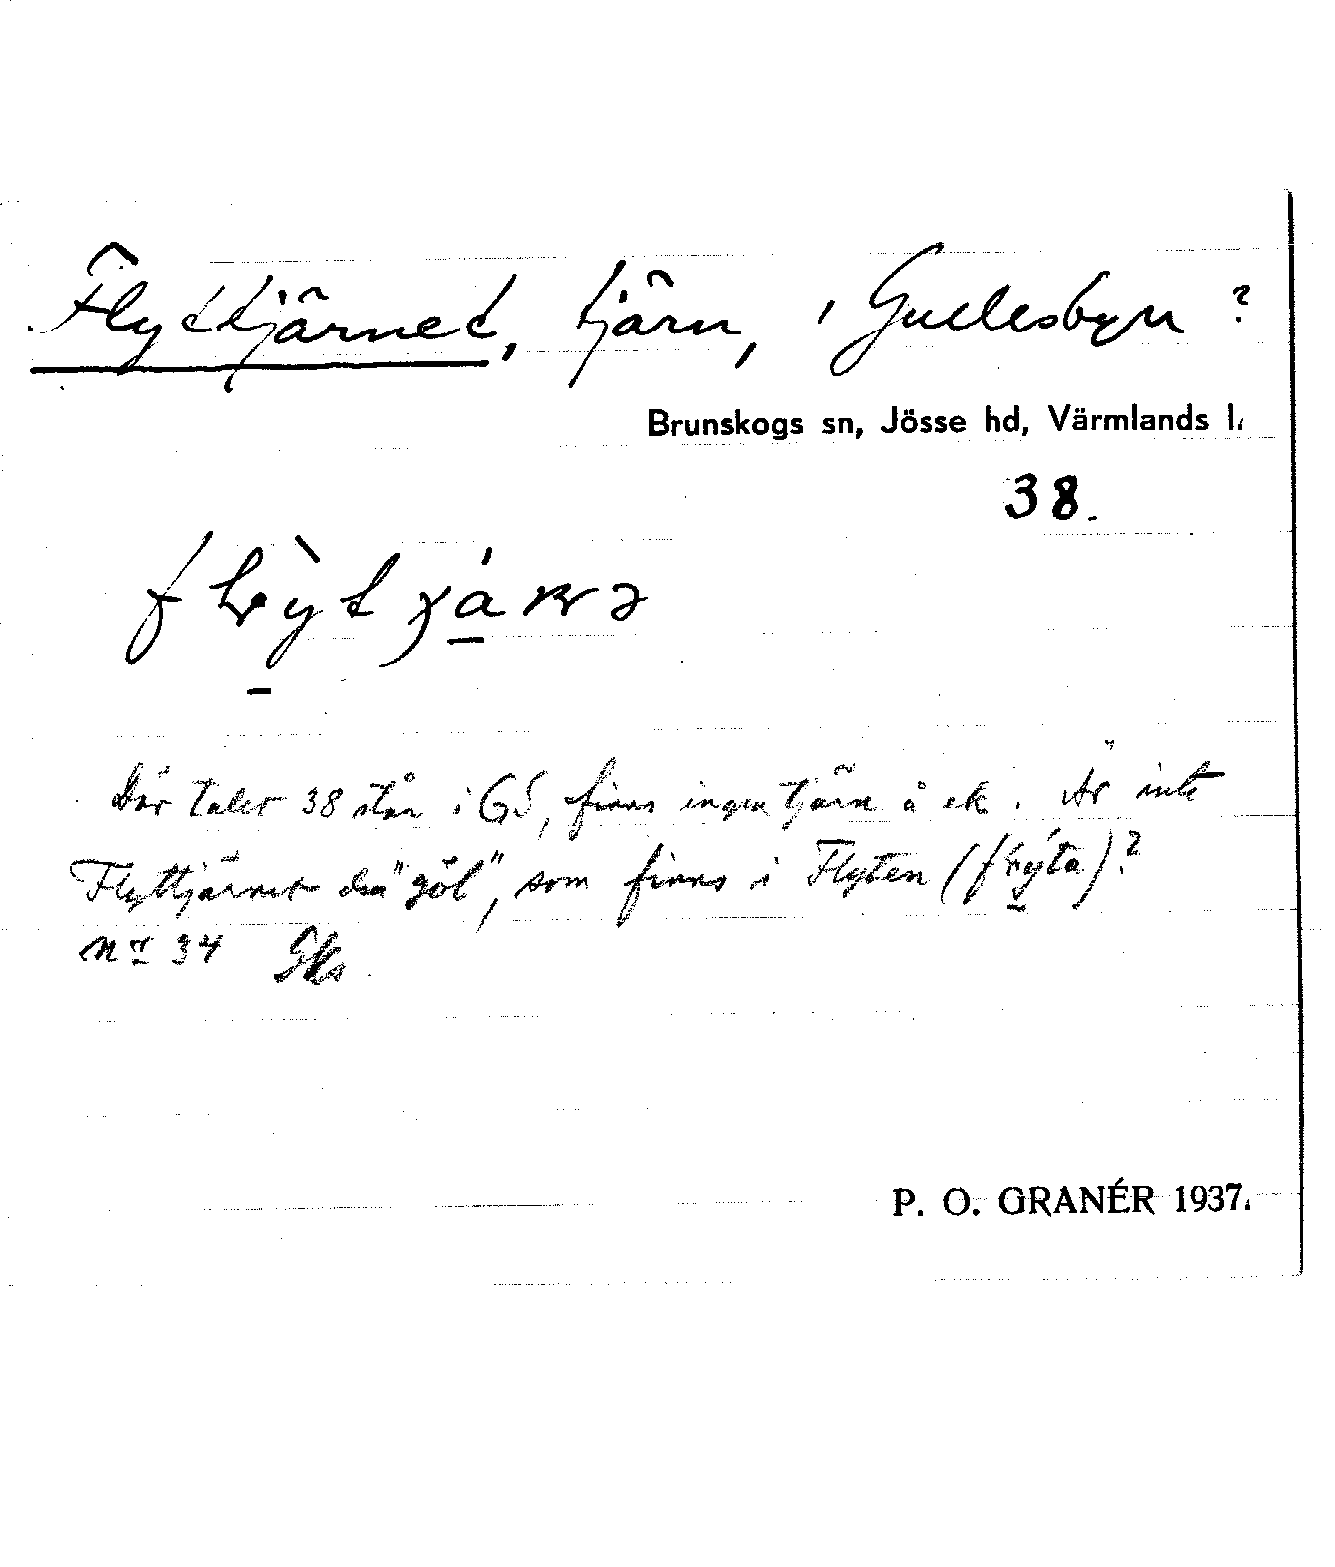 Flyttjärnet, tjärn, i Gullesbyn ?
Brunskogs sn, Jösse hd, Värmlands l.
38.
Där talet 38 står i GS, finns ingen tjärn å ek. Är inte
Flyttjärnet den "göl", som finns i Flyten ( )?
nr 34
P. O. GRANÉR 1937.